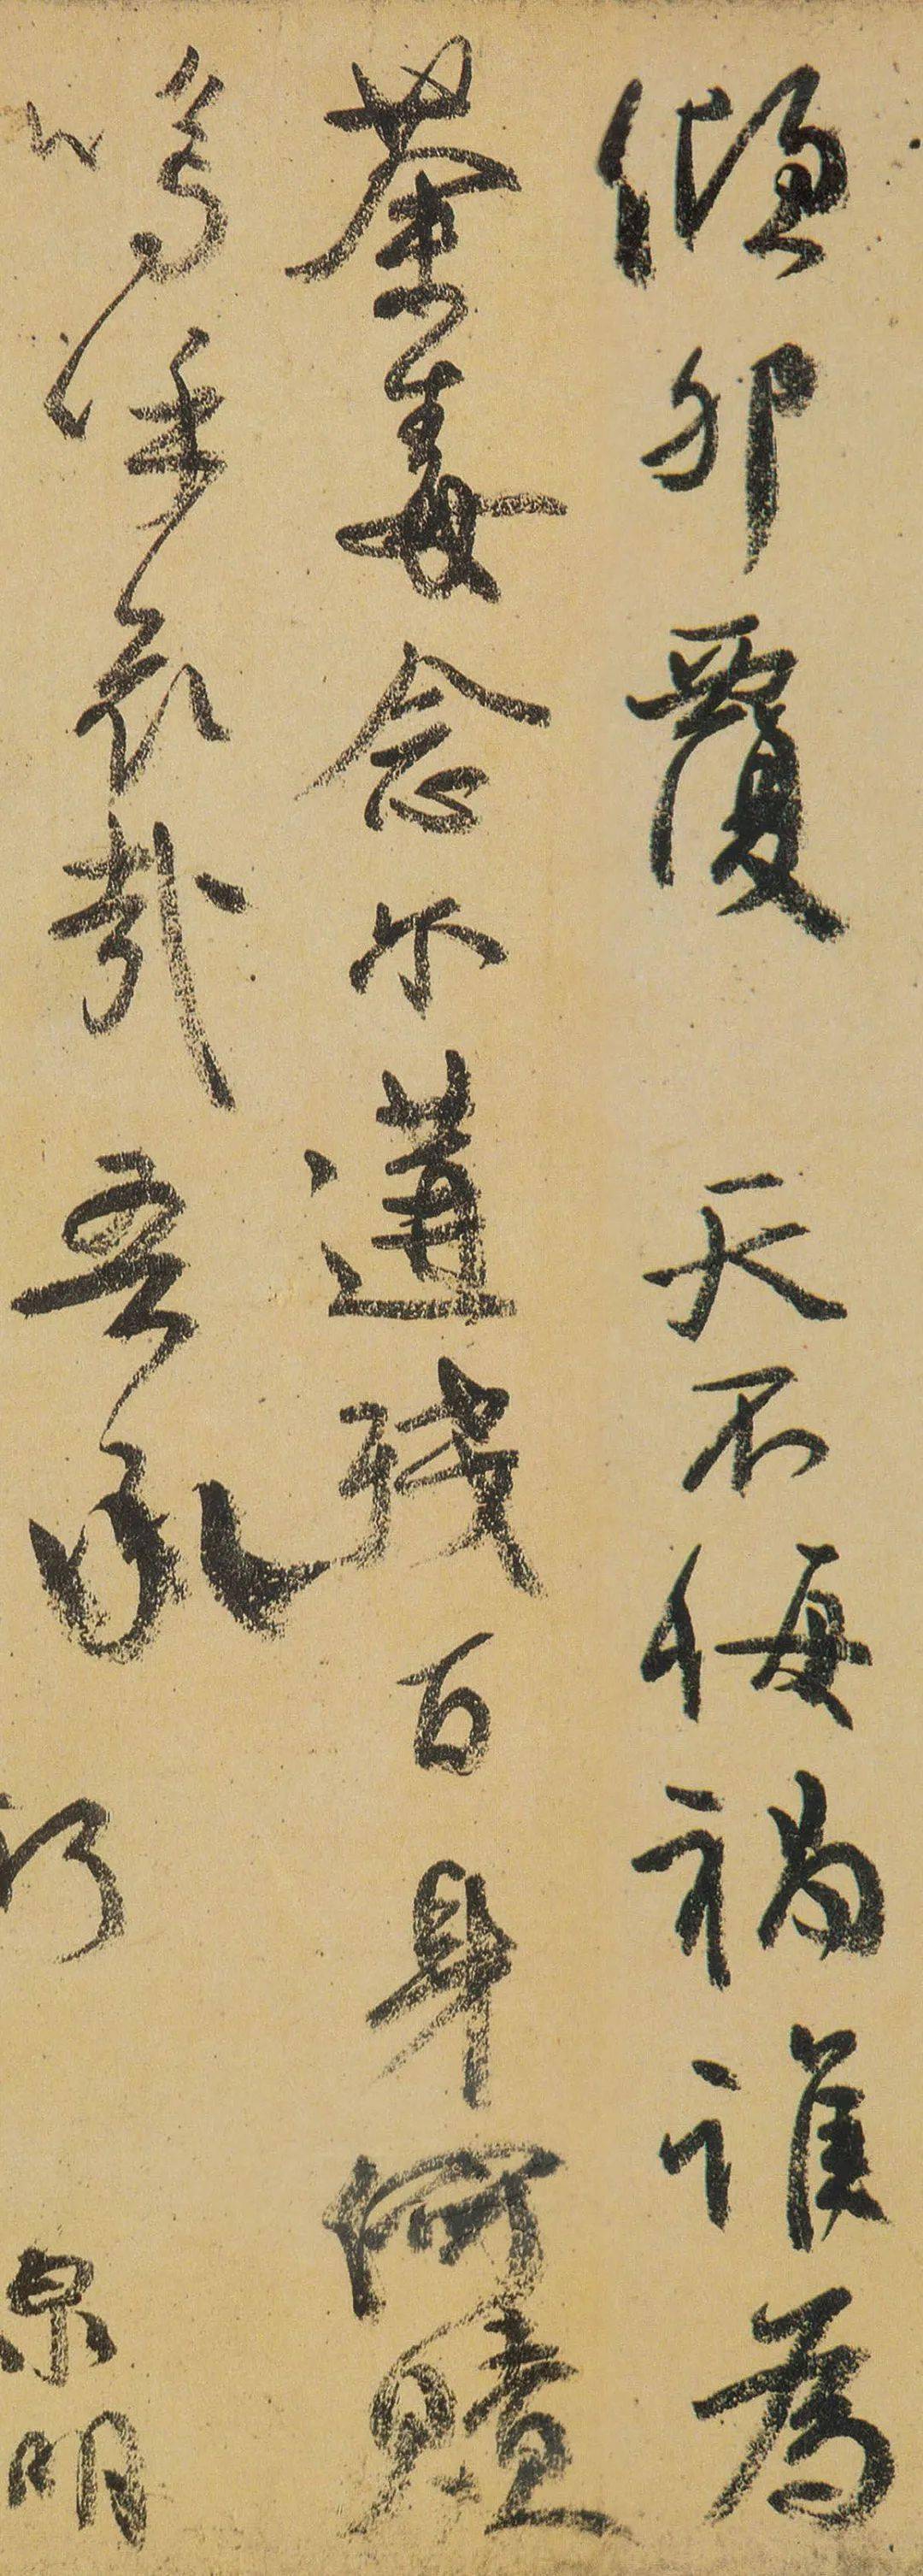 傾卵覆 天不悔禍誰為
荼毒念尔遘殘百身何贖
嗚呼哀哉吾承 泉明